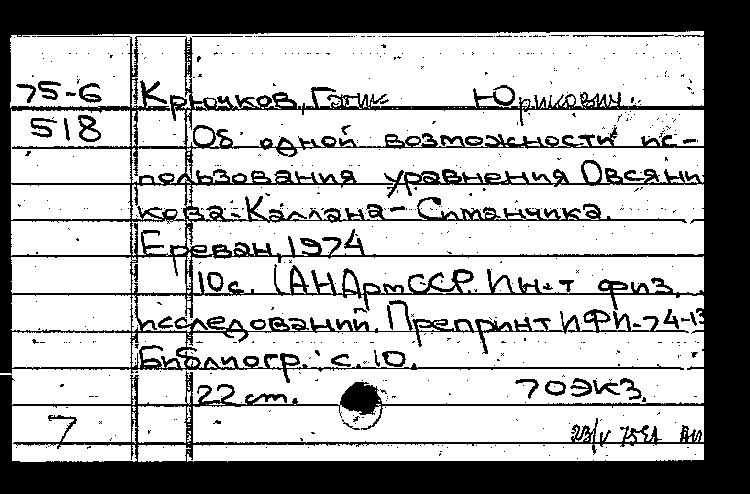 75-6 Крючков, Гагик Юрикович.
518 Об одной возможности ис-
пользования уравнения Овсяни
кова-Каллана-Симанчика.
Ереван, 1974
10с. (АН АрмССР. Ин-т физ.
исследований. Препринт ИФИ-74-13
Библиогр.: с. 10.
22 cm. 70экз.
7 23/V 75